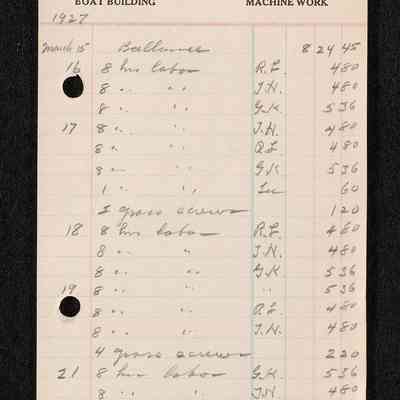 BOAT BUILDING MACHINE WORK
1927
March 15 Ballance 8 24 45
16 8 hrs labor R.L. 4 80
8 " " J.H. 4 80
8 " " G.K. 5 36
17 8 " " J.H. 4 80
8 " " R.L. 4 80
8 " " G.K. 5 36
1 " " Lee 60
2 gross screws 1 20
18 8 hrs labor R.L. 4 80
8 " " J.H. 4 80
8 " " G.K. 5 36
19 8 " " " 5 36
8 " " R.L. 4 80
8 " " J.H. 4 80
4 gross screws 2 20
21 8 hrs labor G.K. 5 36
8 " " J.H. 4 80